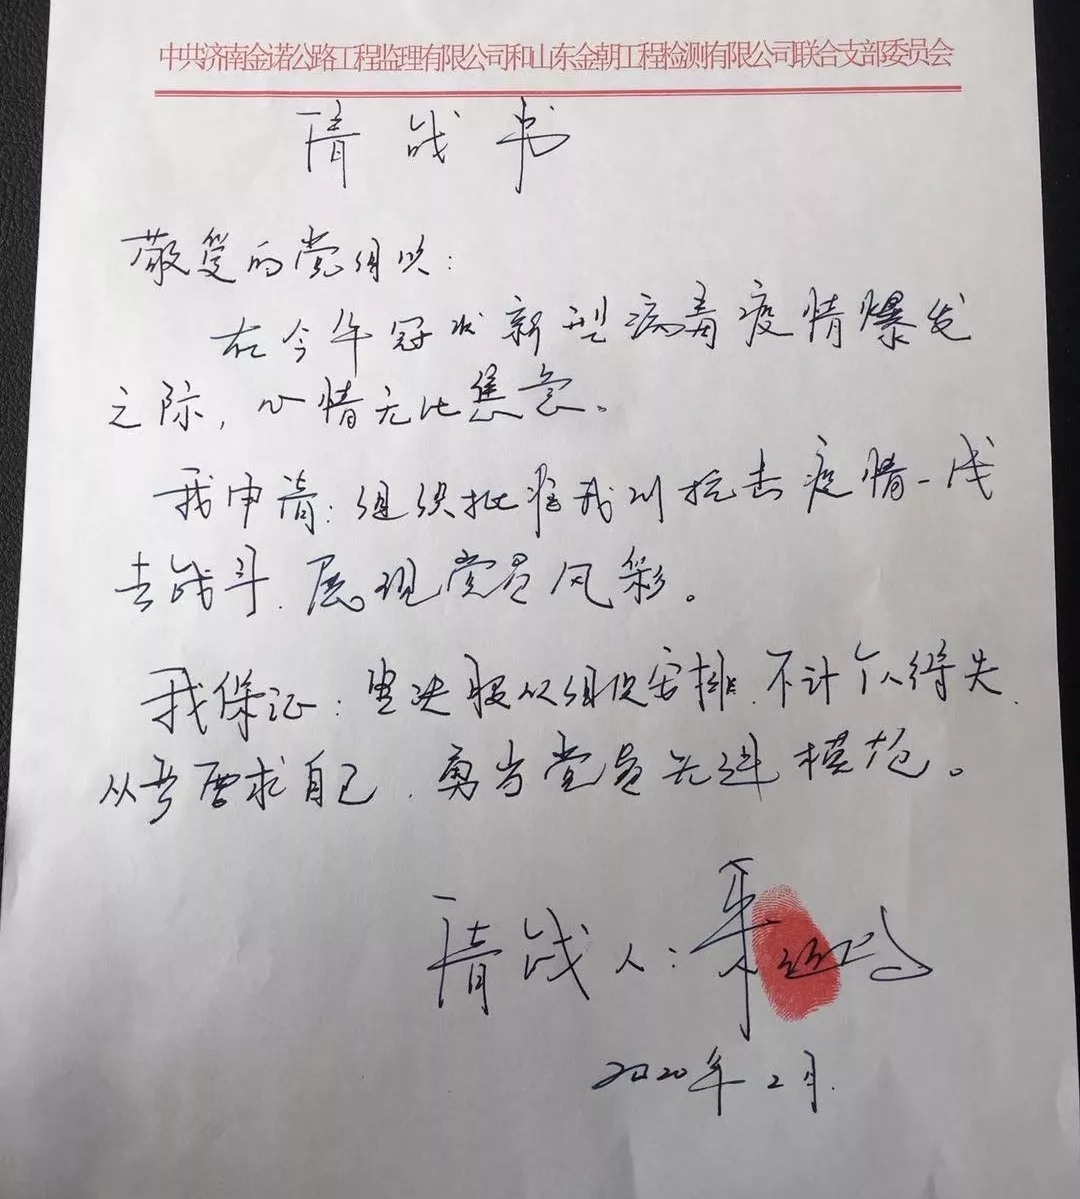 中共济南金诺公路工程监理有限公司和山东金朝工程检测有限公司联合支部委员会
请战书
敬爱的党组织:
在今年冠状新型病毒疫情爆发
之际,心情无比焦急。
我申请:组织批准我到抗击疫情一线
去战斗,展现党员风彩。
我保证:坚决服从组织安排,不计个人得失,
从严要求自己,勇当党员先进模范。
请战人:
2020年2月.